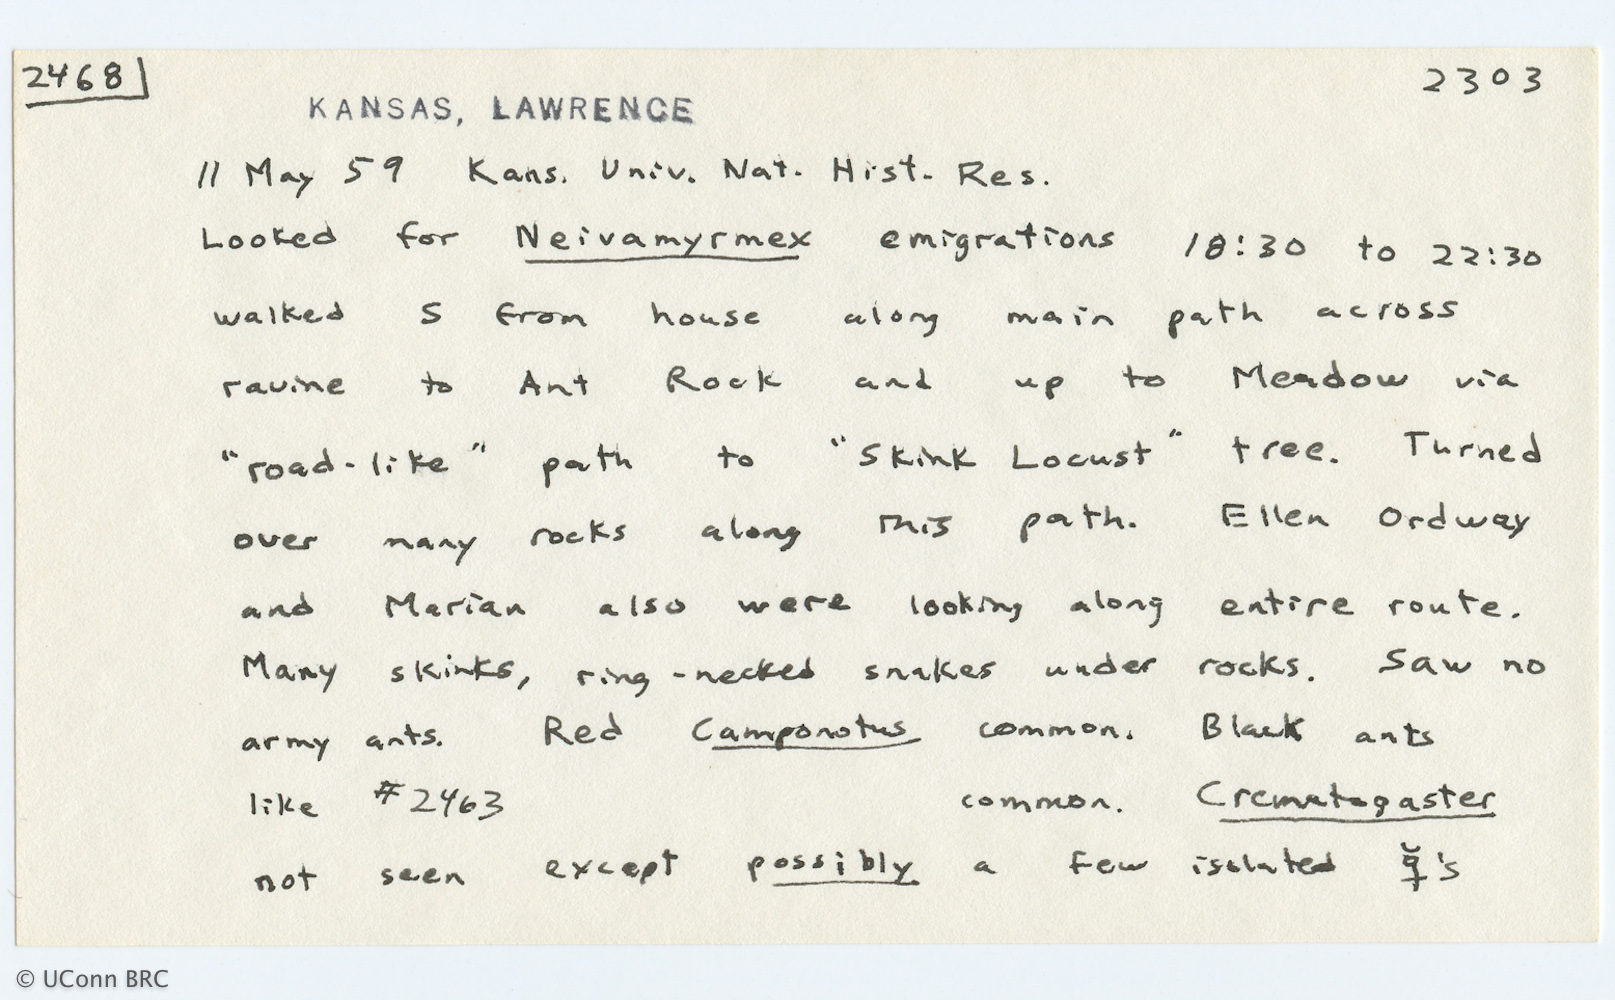 2468
2303
KANSAS, LAWRENCE
11 May 59 Kans. Univ. Nat. Hist. Res.
Looked for Neivamyrmex emigrations 18:30 to 22:30
walked S from house along main path across
ravine to Ant Rock and up to Meadow via
"road-like" path to "Skink Locust" tree. Turned
over many rocks along this path. Ellen Ordway
and Marian also were looking along entire route.
Many skinks, ring-necked snakes under rocks. Saw no
army ants. Red Camponotus common. Black ants
like #2463 common. Crematogaster
not seen except possibly a few isolated ☿'s
© UConn BRC